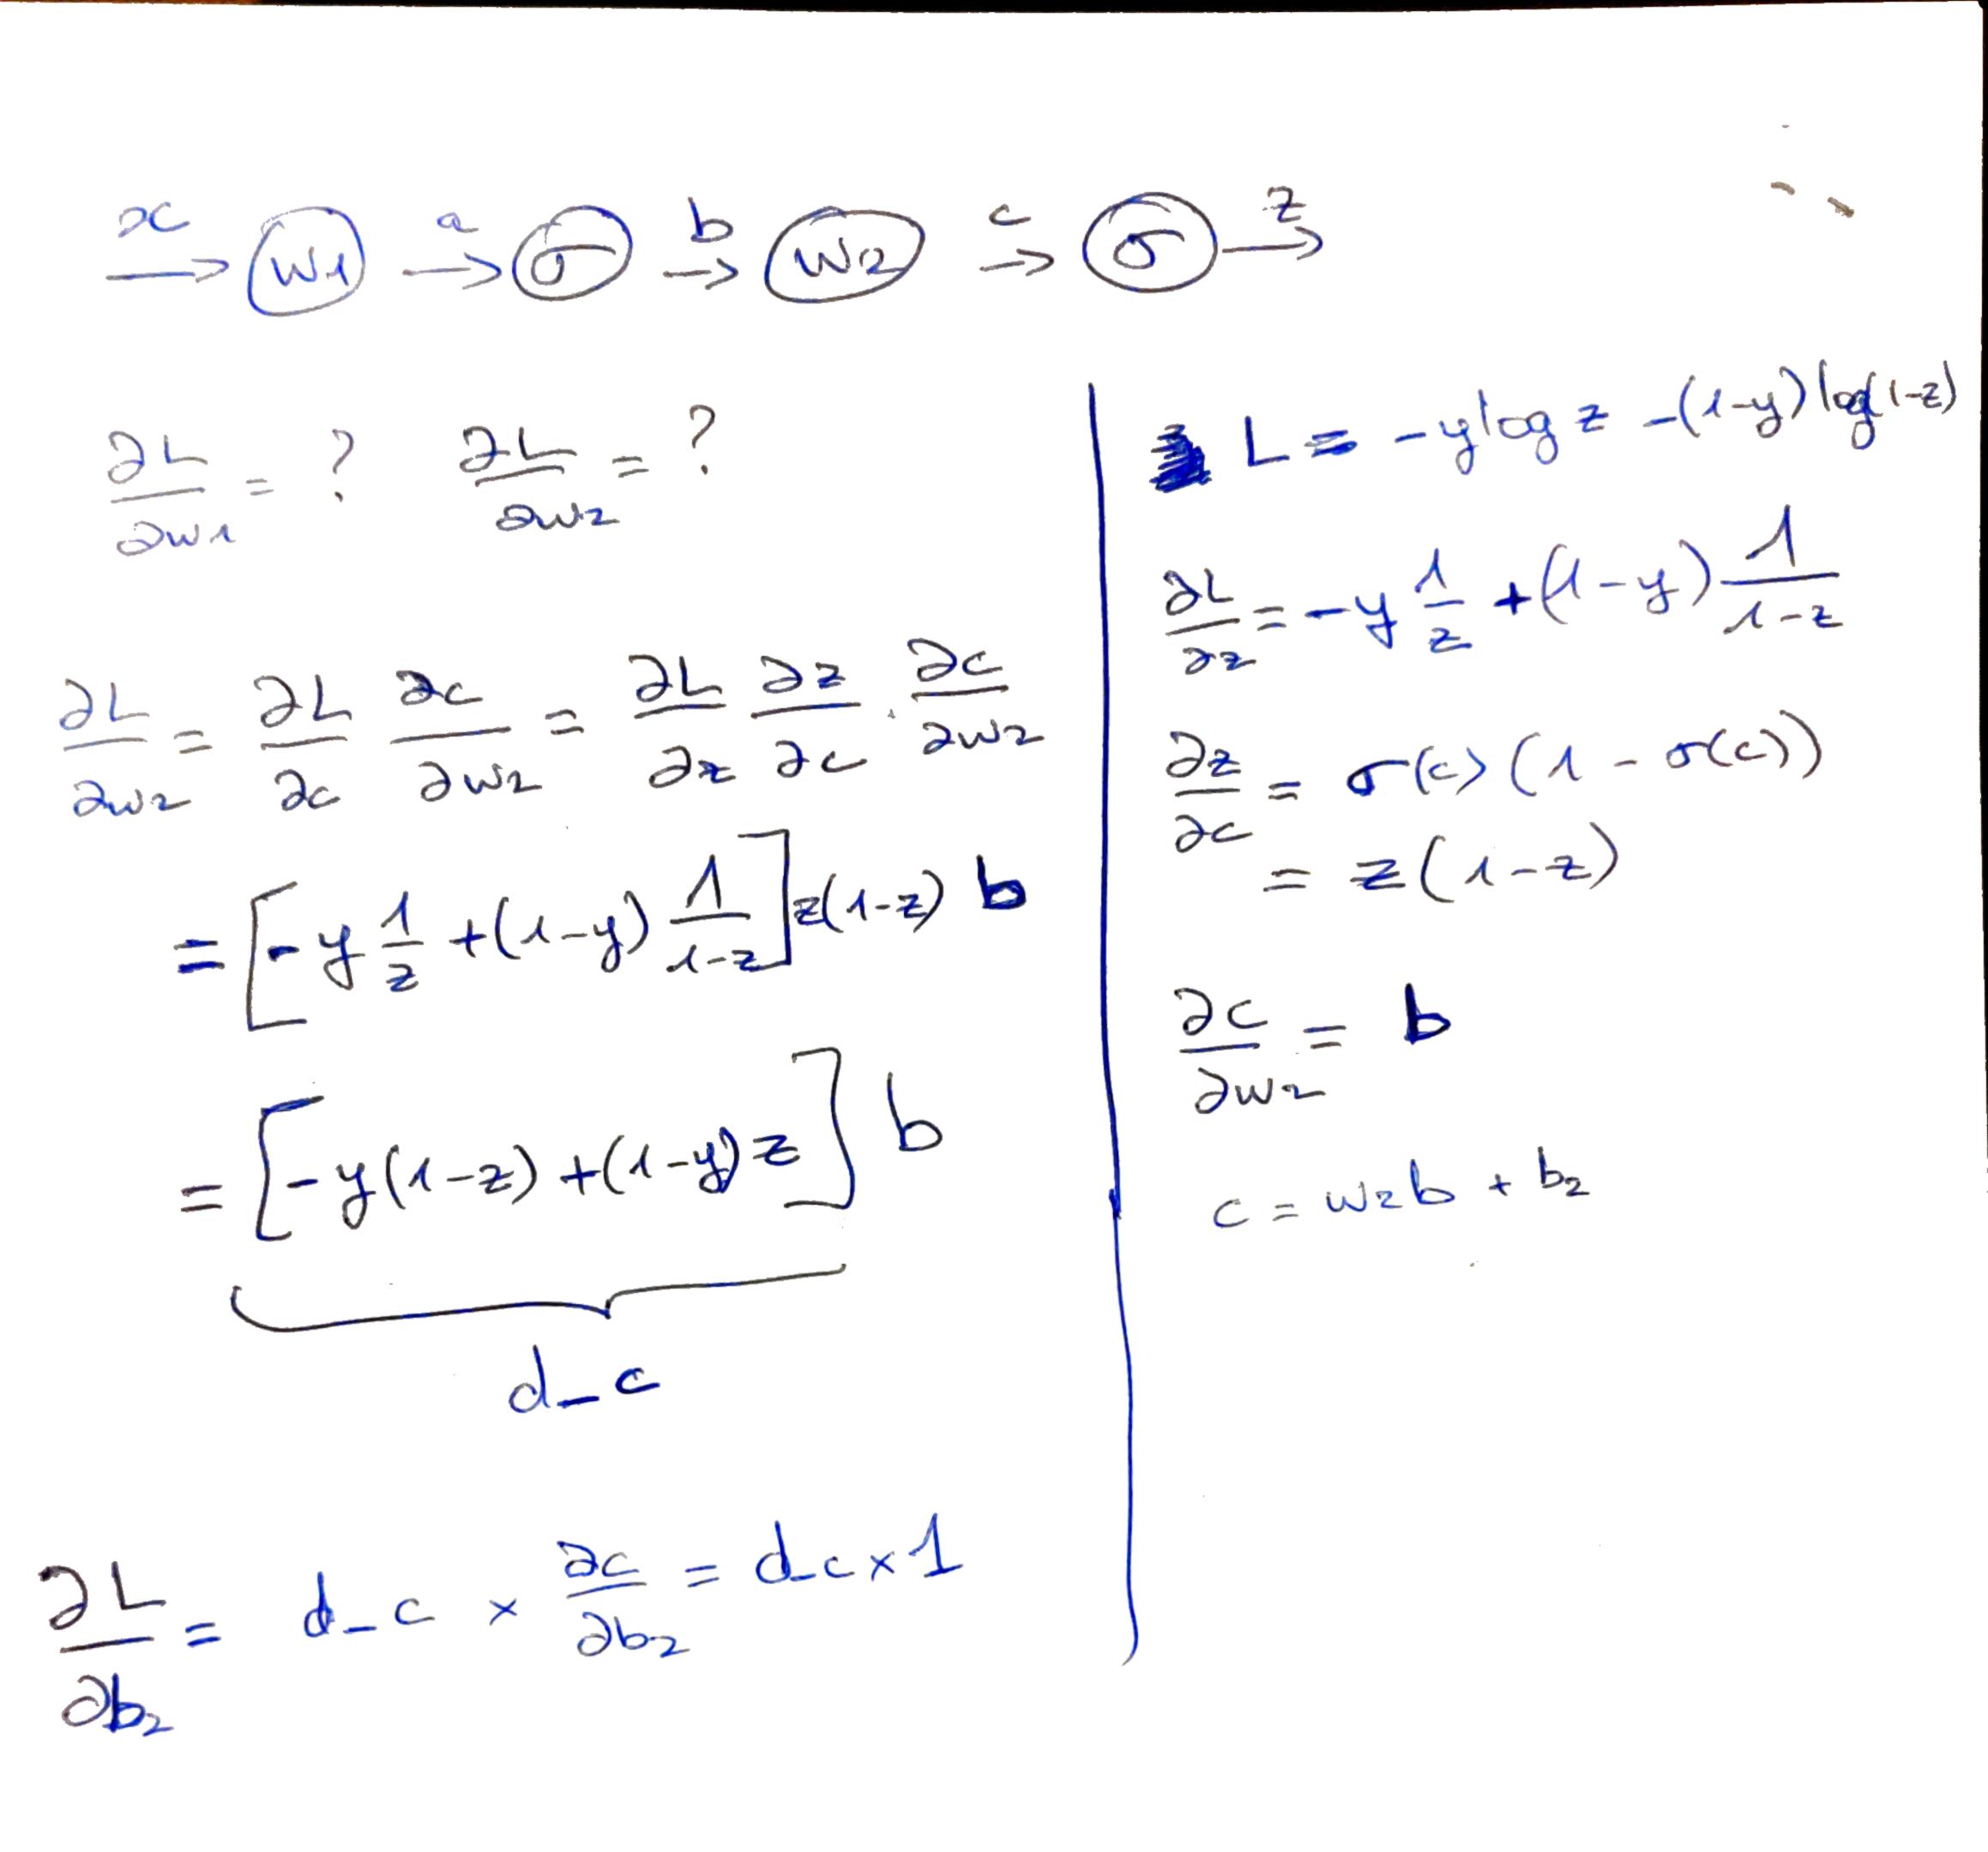 x → w1 a → σ b → w2 c → σ z →
∂L/∂w1 = ? ∂L/∂w2 = ?
∂L/∂w2 = ∂L/∂c ∂c/∂w2 = ∂L/∂z ∂z/∂c . ∂c/∂w2
= [-y 1/z + (1-y) 1/1-z] z(1-z) b
= [-y(1-z) + (1-y)z] b
d_c
∂L/∂b2 = d_c × ∂c/∂b2 = d_c × 1
L = -y log z - (1-y) log(1-z)
∂L/∂z = -y 1/z + (1-y) 1/1-z
∂z/∂c = σ(c) (1 - σ(c))
= z(1-z)
∂c/∂w2 = b
c = w2b + b2